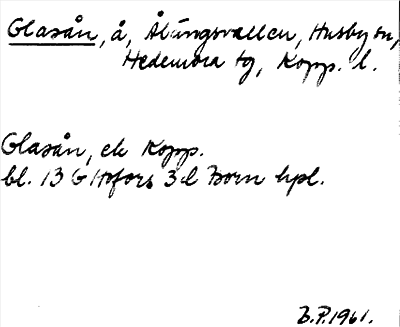 Glasån, å, Ålüngsvallen, Husby sn,
Hedemora tg, Kopp. l.
Glasån, ek Kopp.
bl. 13 G Hofors 3d Born hpl.
B.P. 1961.